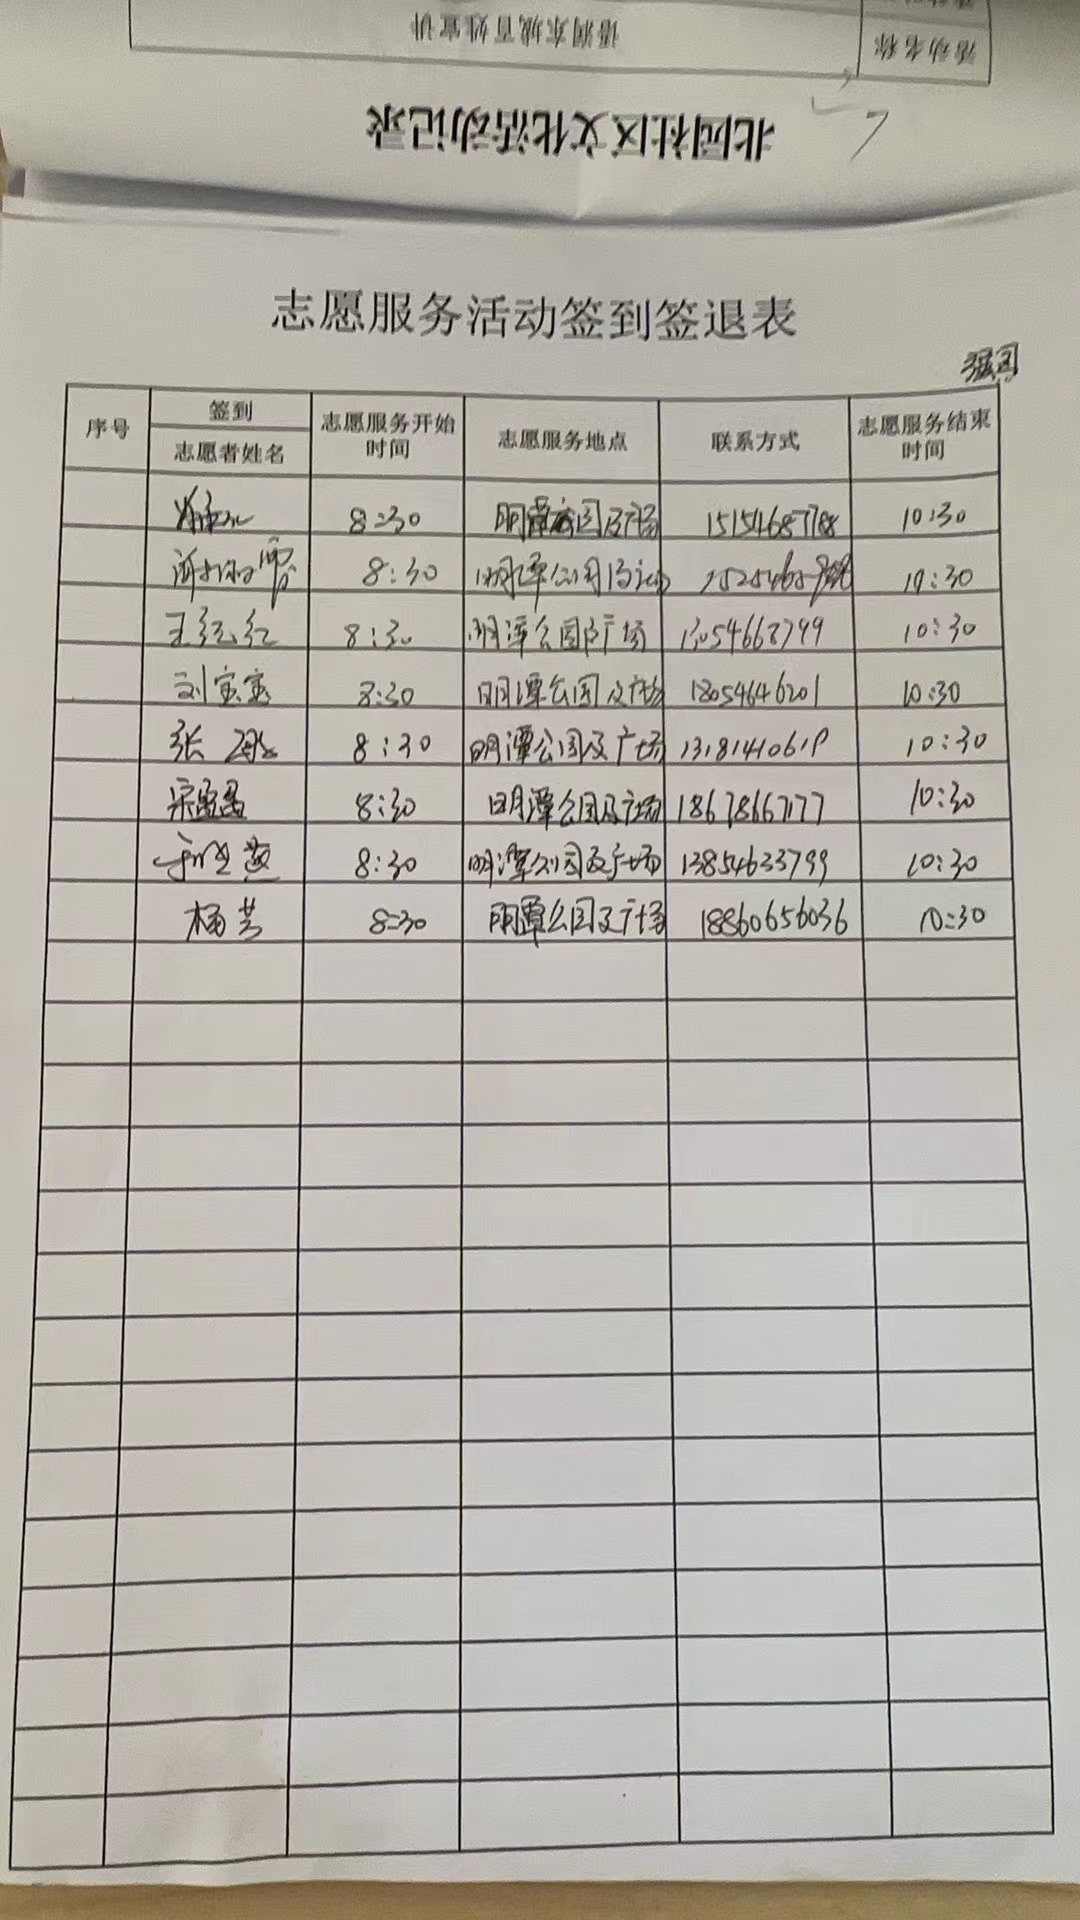 活动名称 语润东城百姓宣讲
北园社区文化活动记录
志愿服务活动签到签退表
序号 签到 志愿者姓名 志愿服务开始时间 志愿服务地点 联系方式 志愿服务结束时间
8:30 明潭公园及广场 15154687788 10:30
8:30 明潭公园 10:30
王红红 8:30 明潭公园及广场 13054668799 10:30
刘宝宝 8:30 明潭公园及广场 18054646201 10:30
张 8:30 明潭公园及广场 10:30
宋盈盈 8:30 明潭公园及广场 18678667177 10:30
8:30 明潭公园及广场 13854633799 10:30
杨芸 8:30 明潭公园及广场 18860656036 10:30